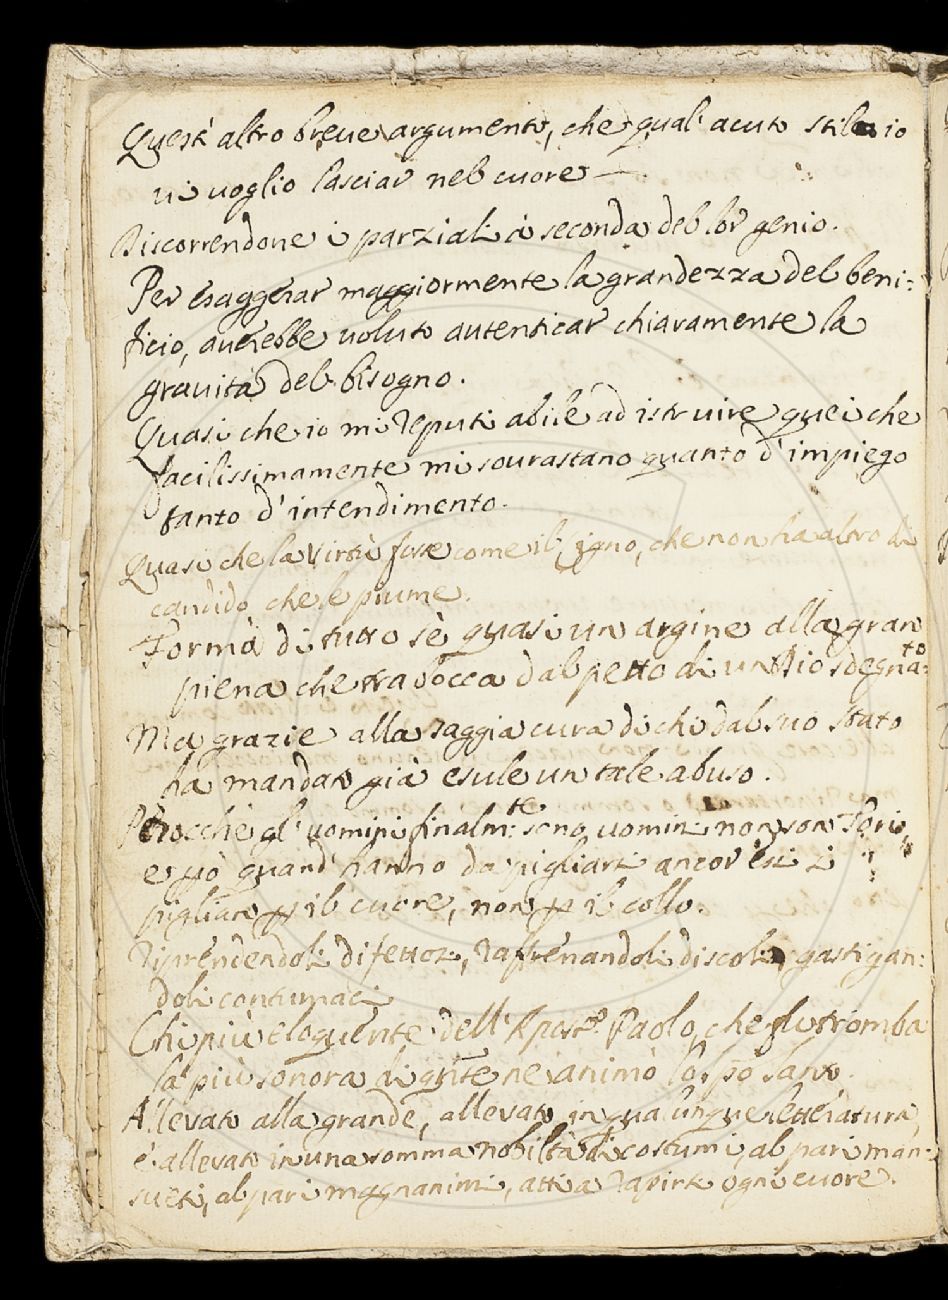 Quest' altro breue argumento, che qual' acuto stile io
ui uoglio lasciar nel cuore —
Discorrendone i parziali à seconda del lor genio.
Per esaggerar maggiormente la grandezza del beni:
ficio, auerebbe uoluto autenticar chiaramente la
grauità del bisogno.
Quasi che io mi reputi abile ad istruire quei che
facilissimamente mi sourastano quanto d' impiego
tanto d' intendimento.
Quasi che la Virtù fosse come il Cigno, che non ha altro di
candido che le piume.
Formò di tutto sè quasi un argine alla gran
piena che trabocca dal petto di un Dio sdegna:to
Ma grazie alla saggia cura di chi dal suo stato
ha mandato già esule un tale abuso.
Perocche gl' uomini finalm:te sono uomini non son Tori,
e però quand' hanno da pigliarsi ancor essi si
pigliano p il cuore, non p il collo.
Riprendendoli difettosi, raffrenandoli discoli, gastigan:
doli contumaci
Chi più eloquente dell' Apost.o Paolo, che fu tromba
la più sonora di qnte ne animò lo spō santo.
Allevato alla grande, allevato in qualunque letteratura,
e allevato in una somma nobiltà di costumi, al pari man:
sueti, al pari magnanimi, atti a rapire ogni cuore.